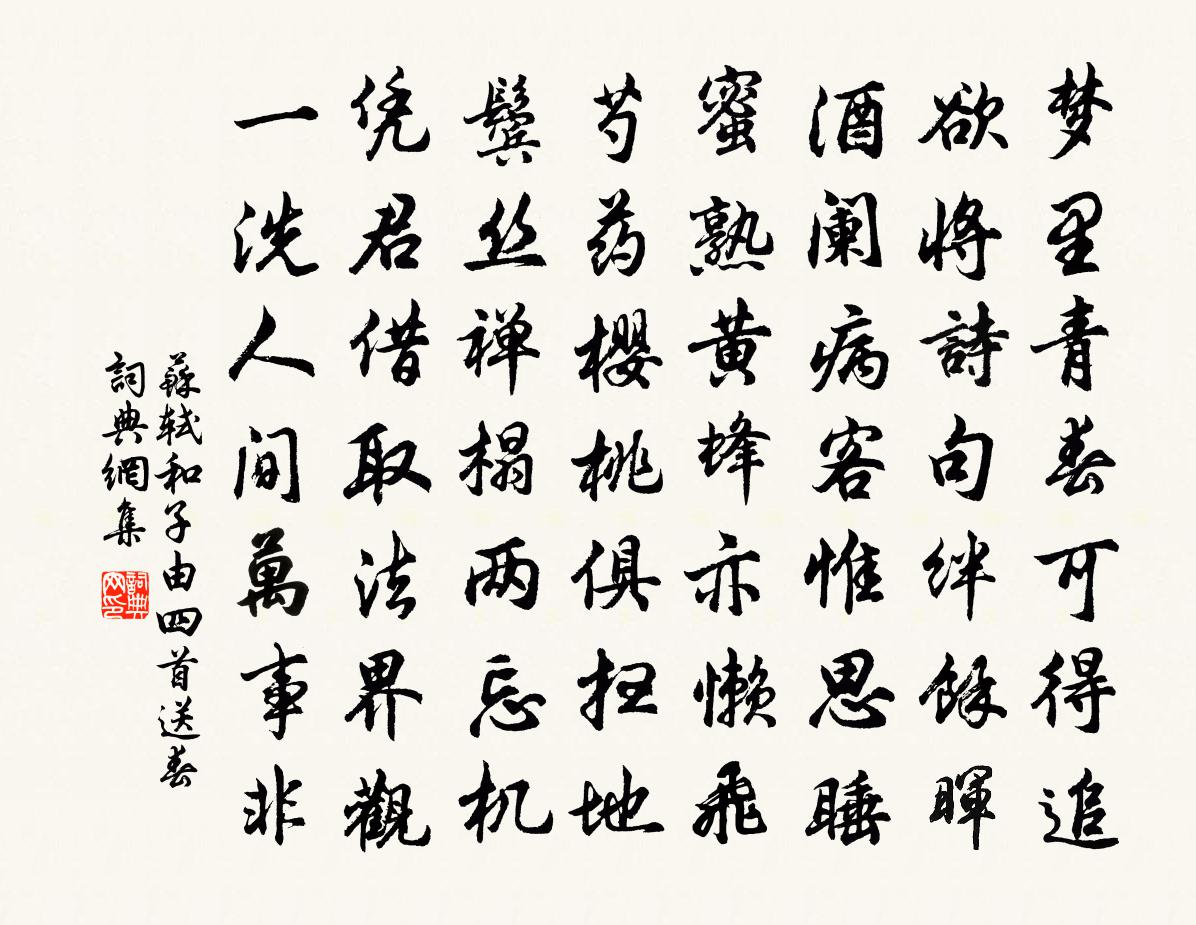 梦里青春可得追
欲将詩句绊馀暉
酒阑病客惟思睡
蜜熟黄蜂亦懒飛
芍药樱桃俱扫地
鬓丝禅榻两忘机
凭君借取法界觀
一洗人间萬事非
蘇轼和子由四首送春
詞典網集
詞典网印